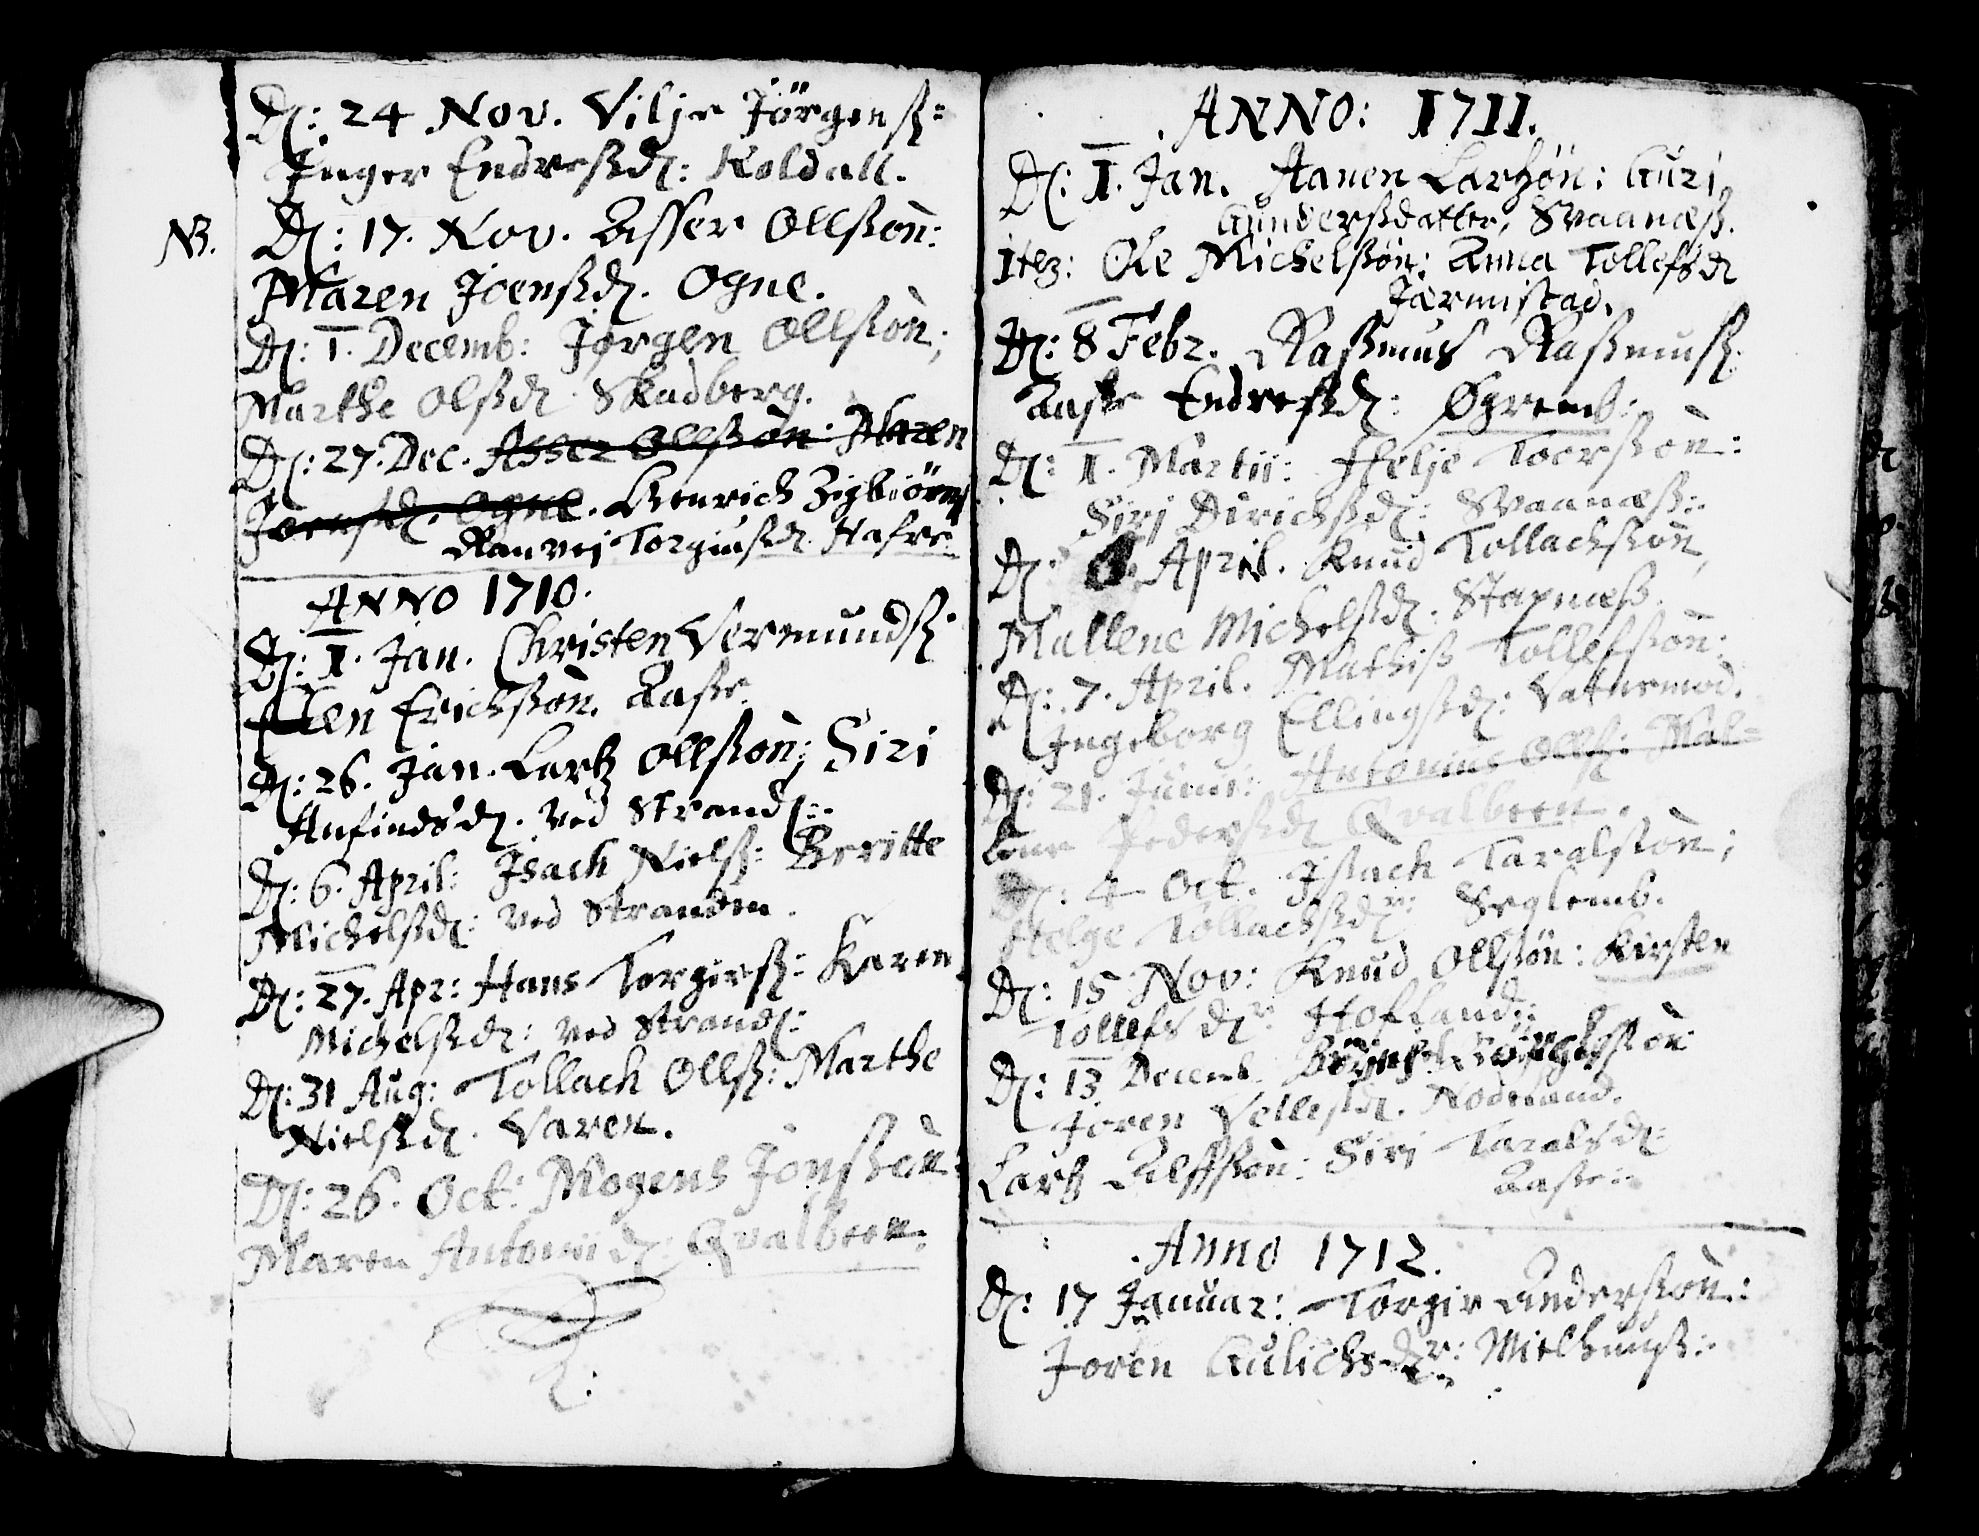 D: 24 Nov. Vilje Jörgenß:
Inger Endresßd: Koldall.
NB. D: 17. Nov. Asser Ollßön:
Maren Joensßd. Ogne.
D: 1. Decemb: Jørgen Ollsön;
Marthe Olsßd. Skadberg.
D: 27. Dec. Asser Ollßön: Maren
Joensßd. Ogne. Henrich Zigbiörns
Ranvej Torgiusßd. Hafre:
ANNO 1710.
D: 1. Jan. Christen Vermundß:
Ellen Erichßön. Aase.
D: 26. Jan. Lartz Ollßön; Siri
Anfindsd. ved Strand:
D: 6. April: Isach Nielsß: Beritte
Michelsßd: ved Stranden.
D: 27. Apr: Hans Torgirsß: Karen
Michelsßd: ved Strand:
D: 31 Aug: Tollach Ollsß: Marthe
Nielsßd. Varen.
D: 26. Oct: Mogens Jonßön:
Maren Antonii d: Qvalbeen.
ANNO: 1711.
D: 1. Jan. Aanen Larßön: Guri
Gundersßdatter, Svaanæß.
Itez: Ole Michelßön: Anna Tollefsd
Jærmistad.
D: 8 Febr. Raßmus Raßmusß.
Aaße Endresßd: Øgremb:
D: 1. Martii: Helje Toersön:
Siri Dirichsßd: Svaanæß:
D: April. Knud Tollachsön,
Mallene Michelsßd: Stapnæß.
D: 7. April. Mathiß Tollefsön:
Ingeborg Ellingsßd: Vatnemod.
D: 21. Junii: Antonius Ollsß: Mal-
lene Pedersßd Qvalbeen.
D: 4 Oct. Isach Taralsön;
Helge Tollachsßd: Seglemb.
D: 15 Nov: Knud Ollßön: Kirsten
Tollefs dr: Hofland:
D: 13 Decemb.
Joren Vellesd. Rodeland.
Lartz Alfßön: Siri Taralsd:
Aase:
Anno 1712.
D: 17 Januar: Torgir Anderßön:
Joren Aulichsdr: Mielhuuß: